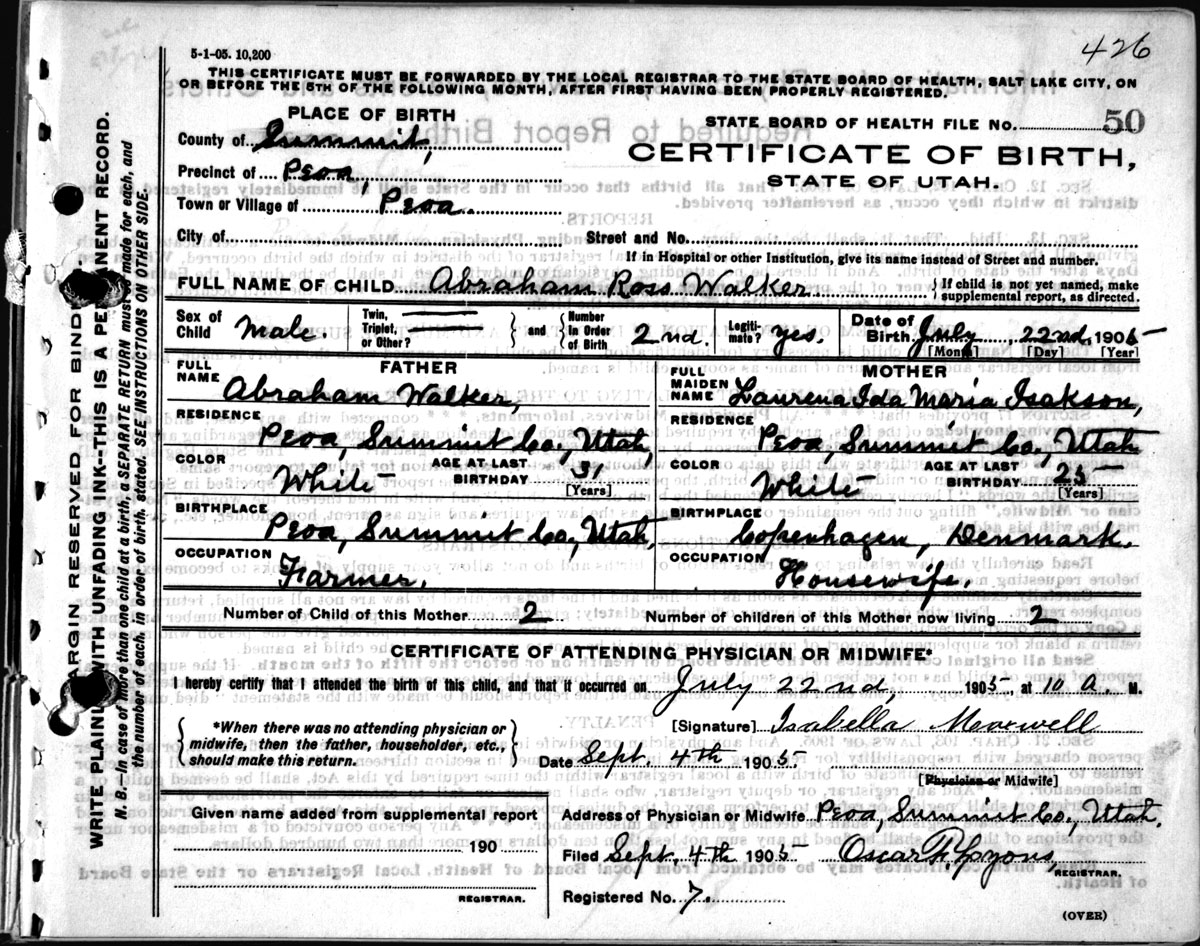 426
5-1-05. 10,200
THIS CERTIFICATE MUST BE FORWARDED BY THE LOCAL REGISTRAR TO THE STATE BOARD OF HEALTH, SALT LAKE CITY, ON
OR BEFORE THE 5TH OF THE FOLLOWING MONTH, AFTER FIRST HAVING BEEN PROPERLY REGISTERED.
PLACE OF BIRTH
County of Summit,
Precinct of Peoa,
Town or Village of Peoa.
STATE BOARD OF HEALTH FILE NO. 50
CERTIFICATE OF BIRTH,
STATE OF UTAH.
City of Street and No.
If in Hospital or other Institution, give its name instead of Street and number.
FULL NAME OF CHILD Abraham Ross Walker. } If child is not yet named, make supplemental report, as directed.
Sex of Child Male
Twin, Triplet, or Other? } and { Number in Order of Birth 2nd.
Legitimate? yes.
Date of Birth July 22nd, 1905
[Month] [Day] [Year]
FATHER
FULL NAME Abraham Walker,
RESIDENCE Peoa, Summit Co., Utah,
COLOR White AGE AT LAST BIRTHDAY 31
[Years]
BIRTHPLACE Peoa, Summit Co., Utah,
OCCUPATION Farmer.
MOTHER
FULL MAIDEN NAME Laurena Ida Maria Isakson,
RESIDENCE Peoa, Summit Co., Utah
COLOR White AGE AT LAST BIRTHDAY 25
[Years]
BIRTHPLACE Copenhagen, Denmark.
OCCUPATION Housewife.
Number of Child of this Mother 2 Number of children of this Mother now living 2
CERTIFICATE OF ATTENDING PHYSICIAN OR MIDWIFE*
I hereby certify that I attended the birth of this child, and that it occurred on July 22nd, 1905, at 10 A. M.
{ *When there was no attending physician or midwife, then the father, householder, etc., should make this return. }
[Signature] Isabella Maxwell
Date Sept. 4th 1905
[Physician or Midwife]
Given name added from supplemental report
190
REGISTRAR.
Address of Physician or Midwife Peoa, Summit Co., Utah.
Filed Sept. 4th 1905 Oscar F. Lyons,
REGISTRAR.
Registered No. 7.
(OVER)
MARGIN RESERVED FOR BINDING.
WRITE PLAINLY WITH UNFADING INK--THIS IS A PERMANENT RECORD.
N. B.--In case of more than one child at a birth, a SEPARATE RETURN must be made for each, and
the number of each, in order of birth, stated. SEE INSTRUCTIONS ON OTHER SIDE.